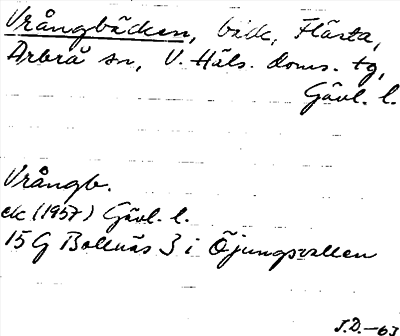 Vrångbäcken, bäck, Flästa,
Arbrå sn, V. Häls. doms. tg,
Gävl. l.
Vrångb.
ek (1957) Gävl. l.
15 G Bollnäs 3 i Öjungsvallen
J.D.-63